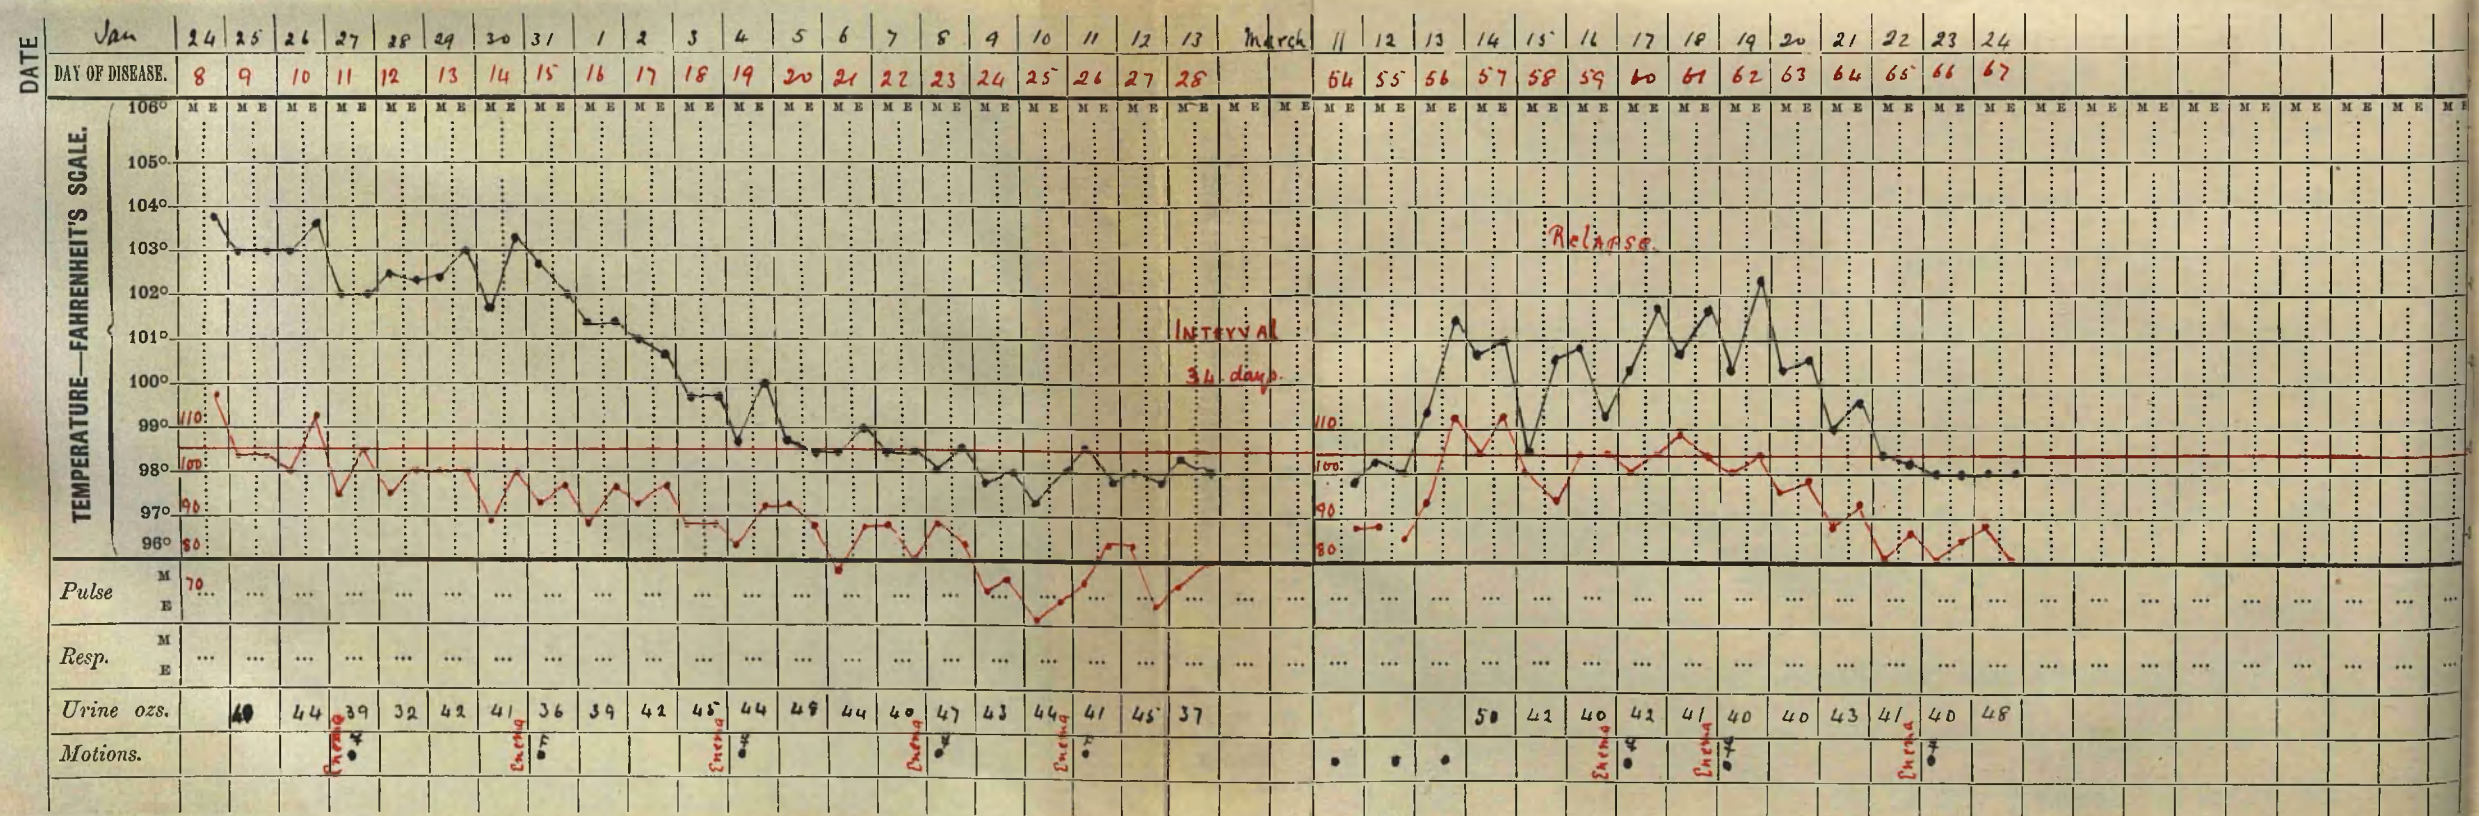 DATE
Jan 24 25 26 27 28 29 30 31 1 2 3 4 5 6 7 8 9 10 11 12 13 March 11 12 13 14 15 16 17 18 19 20 21 22 23 24
DAY OF DISEASE. 8 9 10 11 12 13 14 15 16 17 18 19 20 21 22 23 24 25 26 27 28 54 55 56 57 58 59 60 61 62 63 64 65 66 67
M E M E M E M E M E M E M E M E M E M E M E M E M E M E M E M E M E M E M E M E M E M E M E M E M E M E M E M E M E M E M E M E M E M E M E M E M E M E M E M E M E M E M E M E M E
TEMPERATURE—FAHRENHEIT'S SCALE.
106°
105°
104°
103°
Relapse.
102°
101°
INTERVAL
100°
34 days.
110 110
99°
98° 100 100
97° 90 90
96° 80 80
Pulse M E 70
Resp. M E
Urine ozs. 40 44 39 32 42 41 36 39 42 45 44 48 44 40 47 43 44 41 45 37 50 42 40 42 41 40 40 43 41 40 48
Motions. Enema Enema Enema Enema Enema Enema Enema Enema